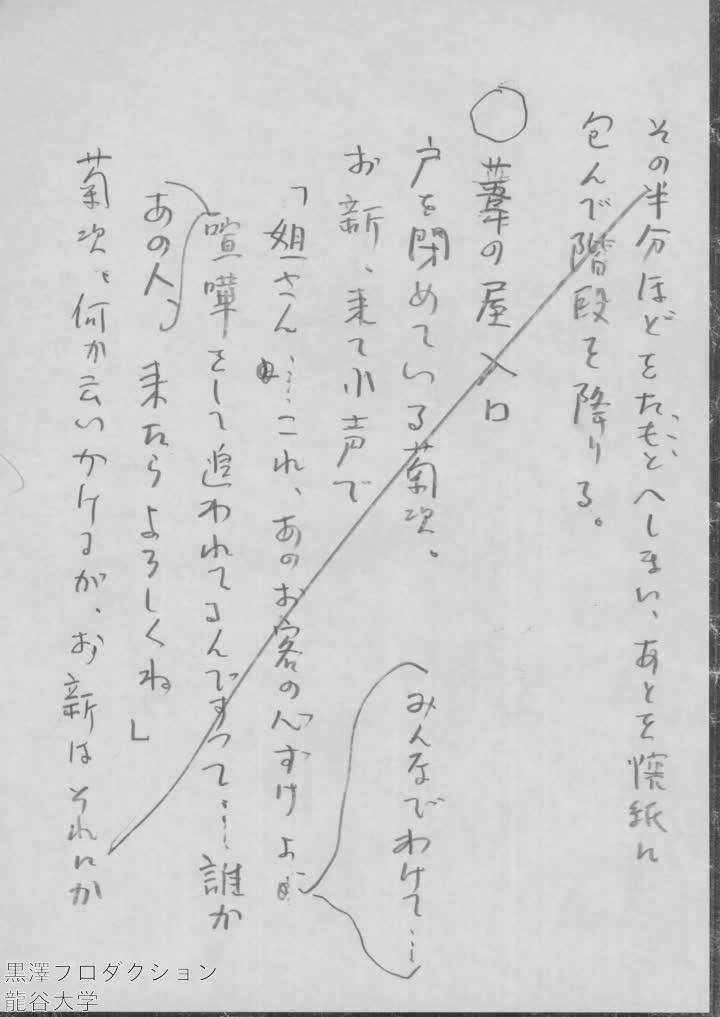 その半分ほどをたもとへしまい、あとを懐紙に
包んで階段を降りる。
○葦の屋 入口
戸を閉めている菊次。
お新、来て小声で
「姐さん……これ、あのお客の心ずけよ……
みんなでわけて……
喧嘩をして追われてるんですって……誰か
あの人、来たらよろしくね」
菊次、何か云いかけるが、お新はそれにか
黒澤プロダクション
龍谷大学